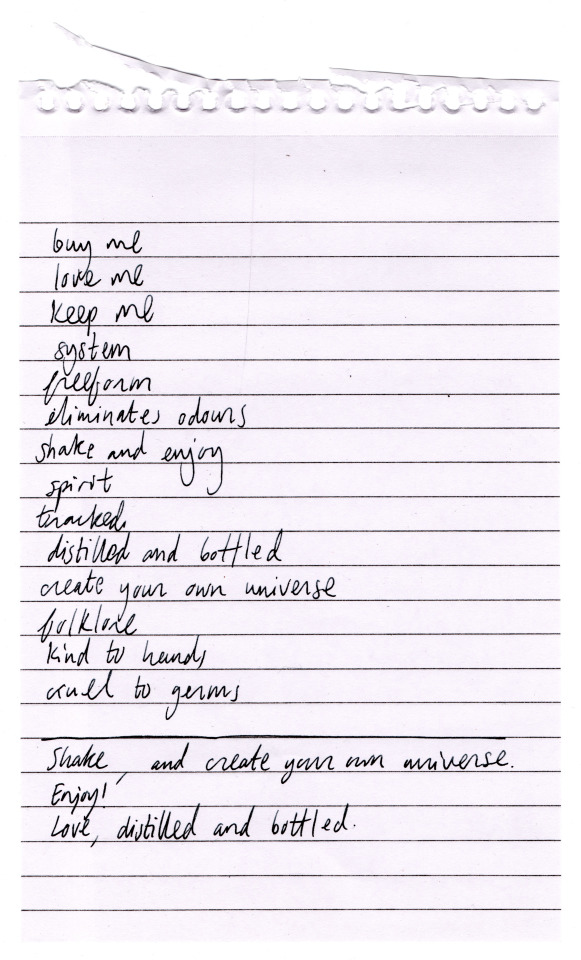 buy me
love me
keep me
system
freeform
eliminates odours
shake and enjoy
spirit
tracked
distilled and bottled
create your own universe
folklore
kind to hands
cruel to germs
Shake, and create your own universe.
Enjoy!
Love, distilled and bottled.